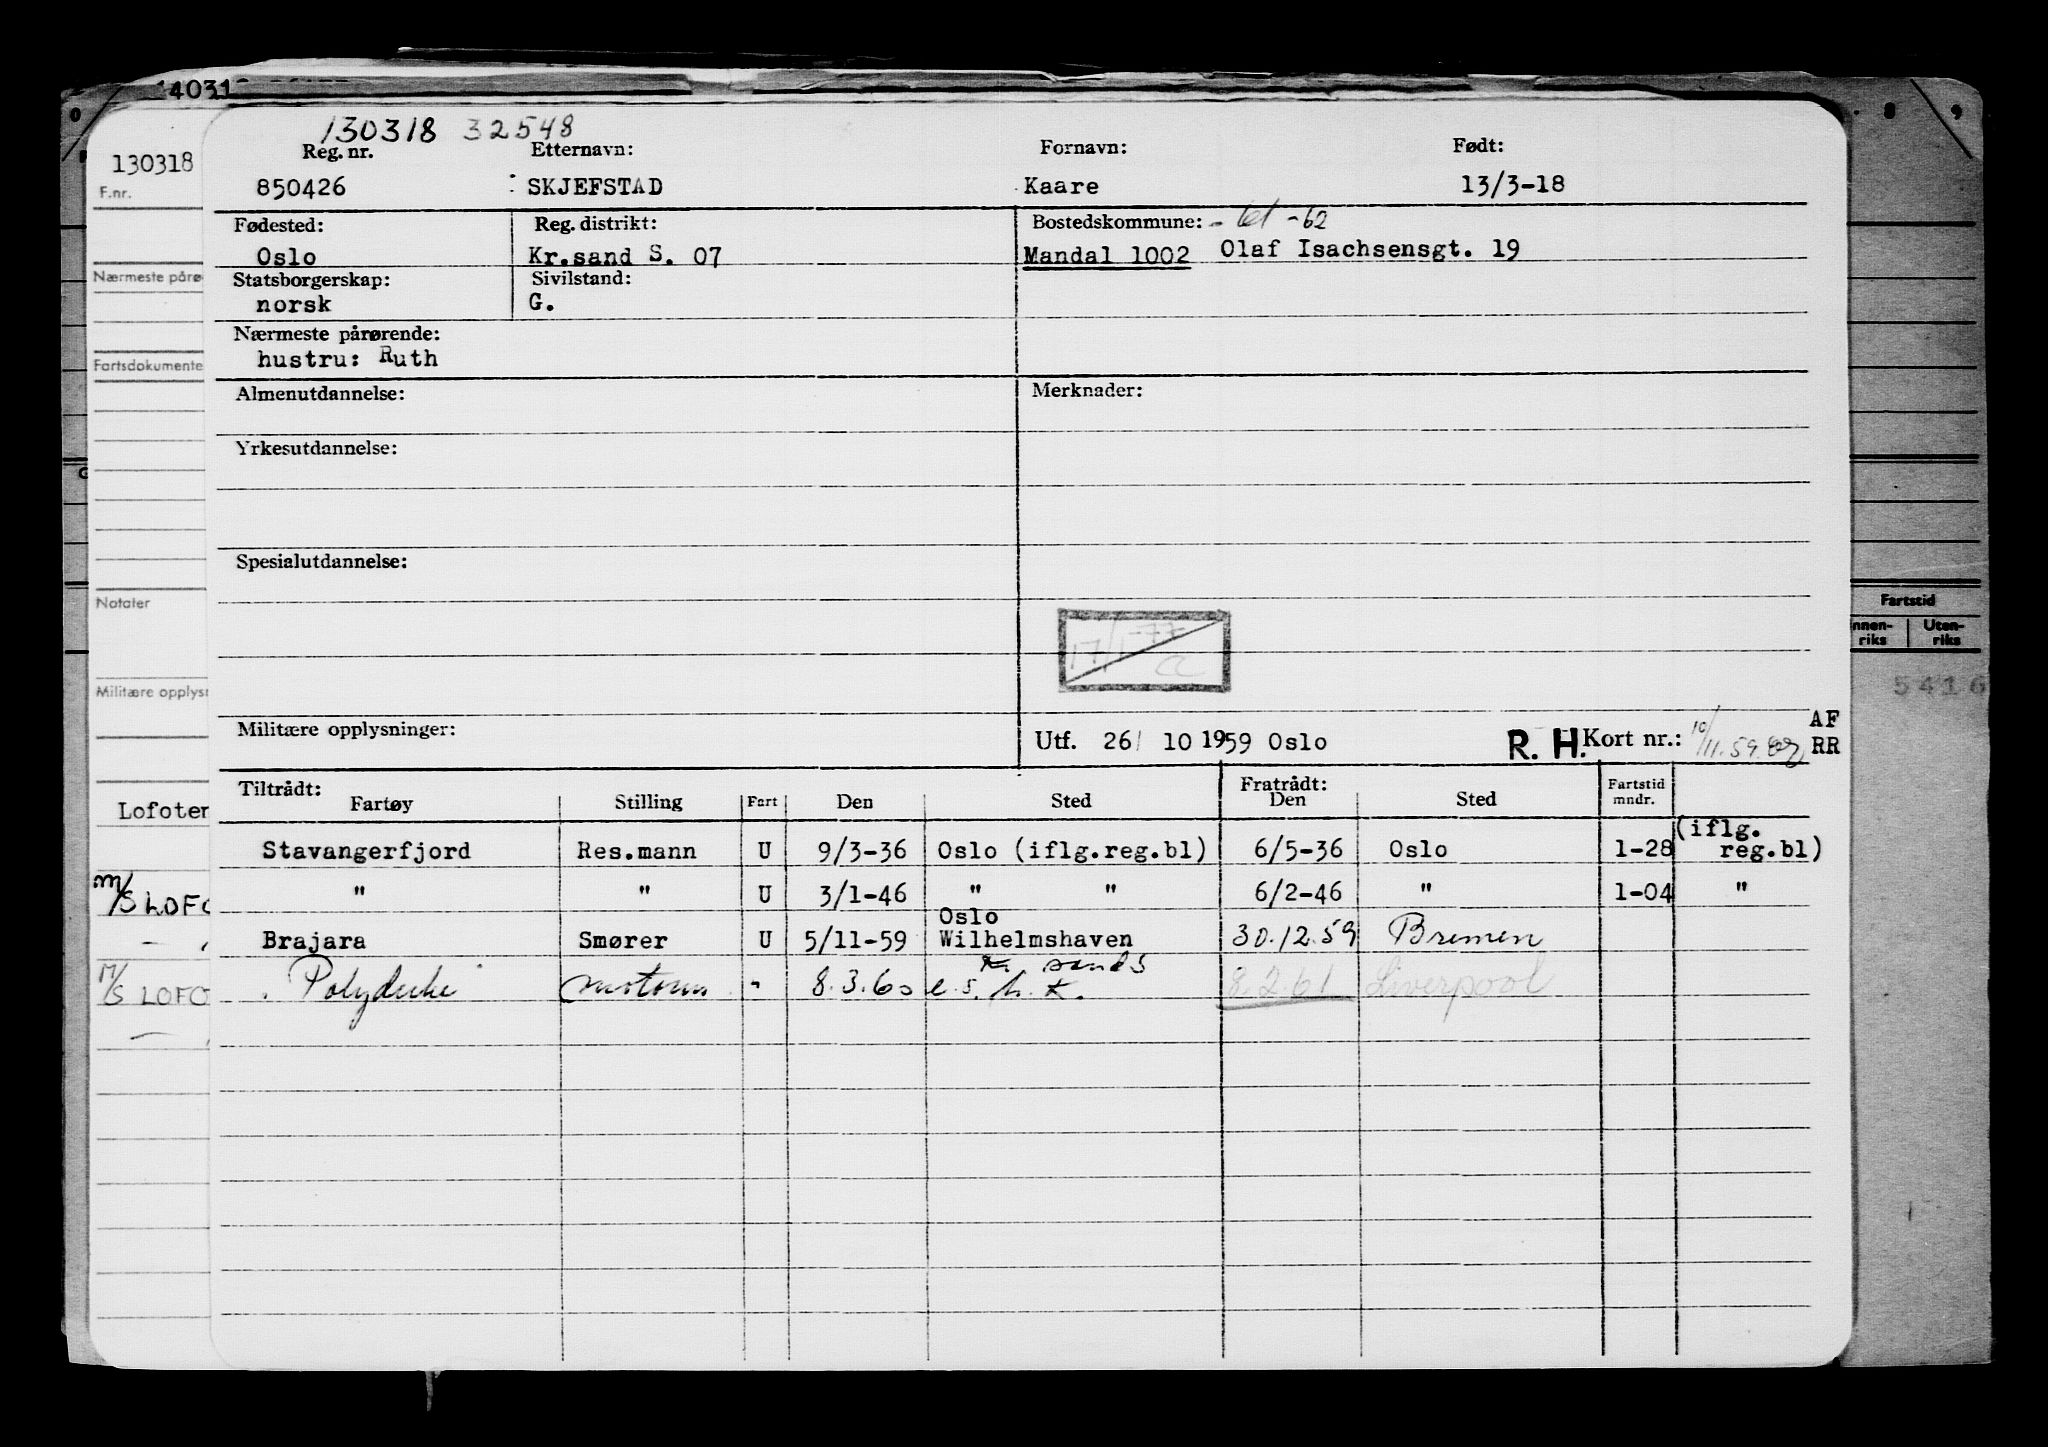 14031
8 9
130318
F.nr.
Nærmeste påre
Fartsdokumente
Notater
Militære opplysn
Lofoten
M/S LOFO
M/S LOFO
130318 32548
Reg. nr. Etternavn: Fornavn: Født:
850426 SKJEFSTAD Kaare 13/3-18
Fødested: Reg. distrikt: Bostedskommune: - 61 -62
Oslo Kr.sand S. 07 Mandal 1002 Olaf Isachsensgt. 19
Statsborgerskap: Sivilstand:
norsk G.
Nærmeste pårørende:
hustru: Ruth
Almenutdannelse: Merknader:
Yrkesutdannelse:
Spesialutdannelse:
17/1-77
Militære opplysninger: Utf. 26/ 10 1959 Oslo R. H. Kort nr.: 10/11.59 AF RR
Tiltrådt: Fratrådt:
Fartøy Stilling Fart Den Sted Den Sted Fartstid mndr.
Stavangerfjord Res.mann U 9/3-36 Oslo (iflg.reg.bl) 6/5-36 Oslo 1-28 (iflg. reg.bl)
" " U 3/1-46 " " 6/2-46 " 1-04 "
Oslo
Brajara Smører U 5/11-59 Wilhelmshaven 30.12.59 Bremen
Kr. sands
motorm. " 8.3.60 e.s. h.k. 8.2.61 Liverpool
Fartstid
Innen- riks Uten- riks
5416